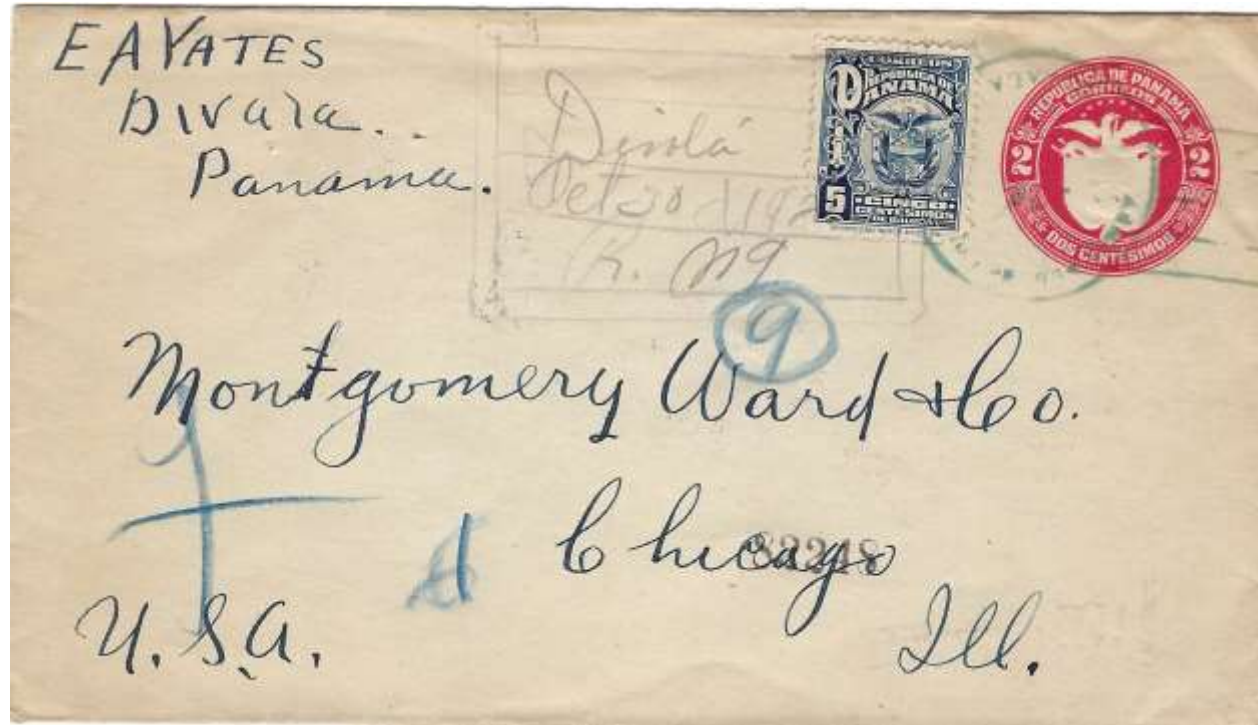 E A YATES
Divala..
Panama.
Divalá
Oct 20 192
R. Nº 9
CORREOS
REPUBLICA DE
PANAMA
5
CINCO
CENTESIMOS
REPUBLICA DE PANAMA
CORREOS
2 2
DOS CENTESIMOS
9
Montgomery Ward & Co.
Chicago
82248
U.S.A.
Ill.